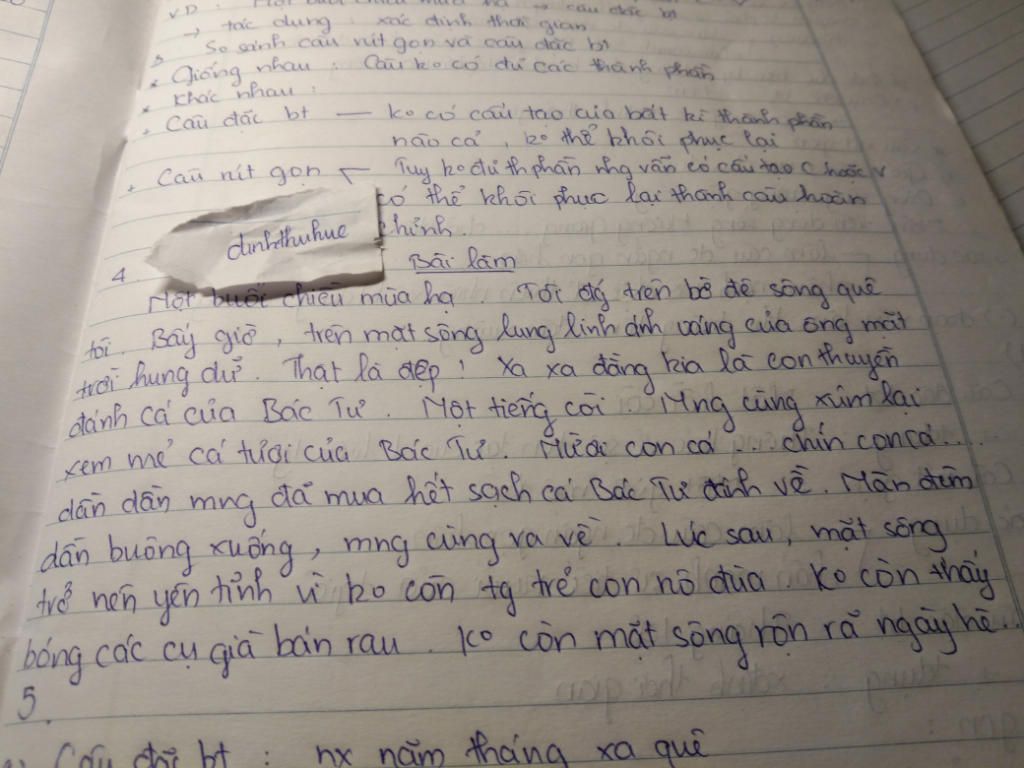 VD : Một buổi chiều mùa hạ → câu đặc bt
→ tác dụng : xác định thời gian
So sánh câu rút gọn và câu đặc bt
* Giống nhau : Câu ko có đủ các thành phần
* Khác nhau :
+ Câu đặc bt — ko có cấu tạo của bất kì thành phần
nào cả, ko thể khôi phục lại
+ Câu rút gọn — Tuy ko đủ th phần nhg vẫn có cấu tạo C hoặc V
có thể khôi phục lại thành câu hoàn
dinhthuhue chỉnh.
4 Bài làm
Một buổi chiều mùa hạ Tôi đg trên bờ đê sông quê
tôi. Bây giờ, trên mặt sông lung linh ánh vàng của ông mặt
trời hung dữ. Thật là đẹp ! Xa xa đằng kia là con thuyền
đánh cá của Bác Tư. Một tiếng còi. Mng cùng xúm lại
xem mẻ cá tươi của Bác Tư. Mười con cá... chín con cá...
dần dần mng đã mua hết sạch cá Bác Tư đánh về. Màn đêm
dần buông xuống, mng cùng ra về. Lúc sau, mặt sông
trở nên yên tĩnh vì ko còn tg trẻ con nô đùa. Ko còn thấy
bóng các cụ già bán rau. Ko còn mặt sông rộn rã ngày hè...
5.
Câu đặc bt : nx năm tháng xa quê